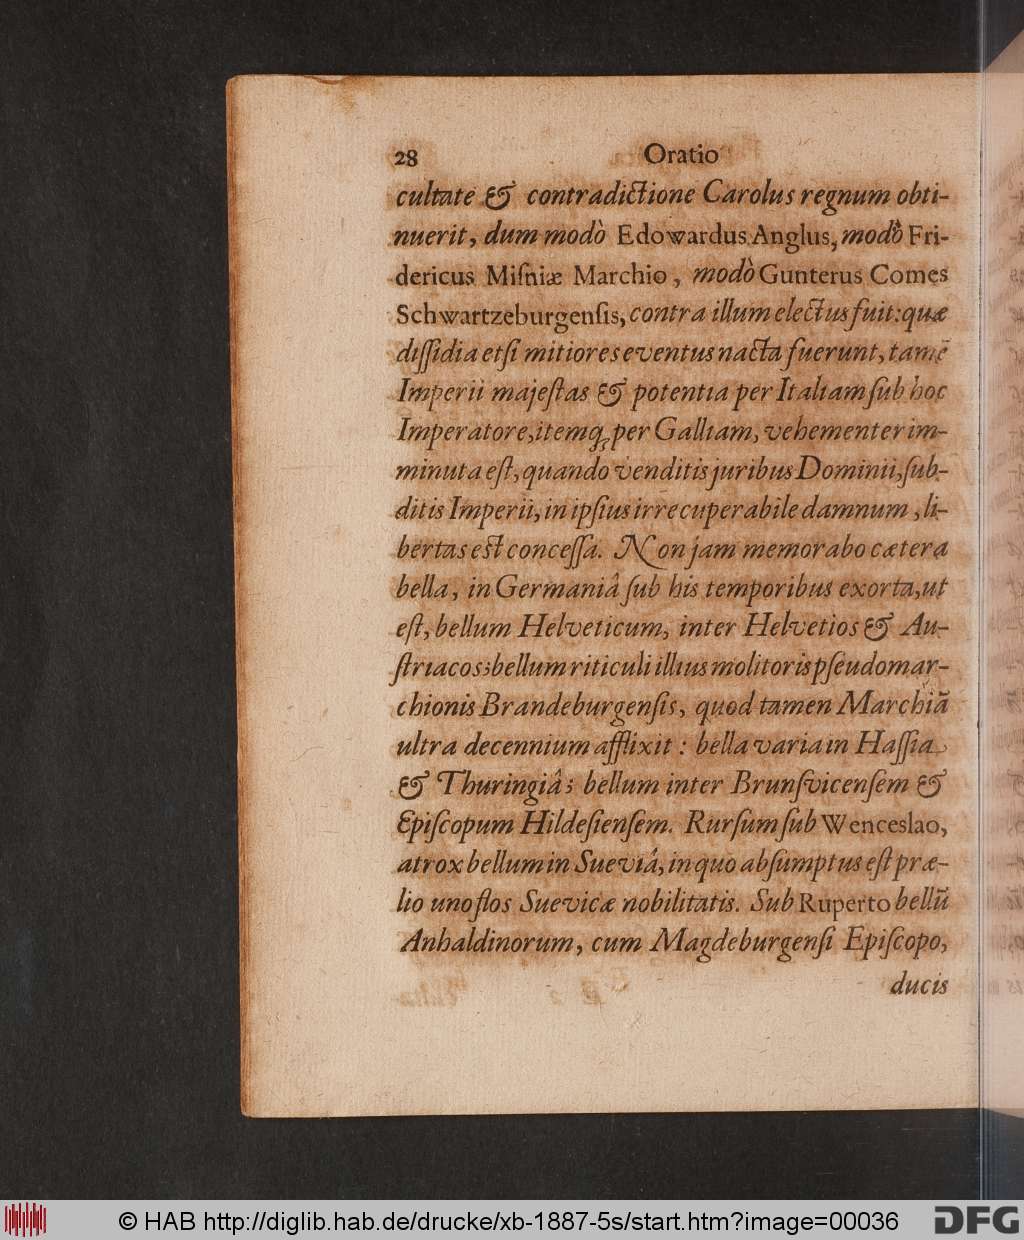 28 Oratio
cultate & contradictione Carolus regnum obti-
nuerit, dum modò Edowardus Anglus, modò Fri-
dericus Miſniæ Marchio, modò Gunterus Comes
Schwartzeburgenſis, contra illum electus fuit: quæ
diſſidia etſi mitiores eventus nacta fuerunt, tamē
Imperii majeſtas & potentia per Italiam ſub hoc
Imperatore, itemq; per Galliam, vehementer im-
minuta eſt, quando venditis juribus Dominii, ſub-
ditis Imperii, in ipſius irrecuperabile damnum, li-
bertas est conceſſa. Non jam memorabo cætera
bella, in Germaniâ ſub his temporibus exorta, ut
eſt, bellum Helveticum, inter Helvetios & Au-
ſtriacos; bellum riticuli illius molitoris pſeudomar-
chionis Brandeburgenſis, quod tamen Marchiā
ultra decennium afflixit: bella varia in Haſſia
& Thuringiâ; bellum inter Brunſvicenſem &
Epiſcopum Hildeſienſem. Rurſum ſub Wenceslao,
atrox bellum in Sueviâ, in quo abſumptus eſt præ-
lio uno flos Suevicæ nobilitatis. Sub Ruperto bellū
Anhaldinorum, cum Magdeburgenſi Epiſcopo,
ducis
© HAB http://diglib.hab.de/drucke/xb-1887-5s/start.htm?image=00036
DFG